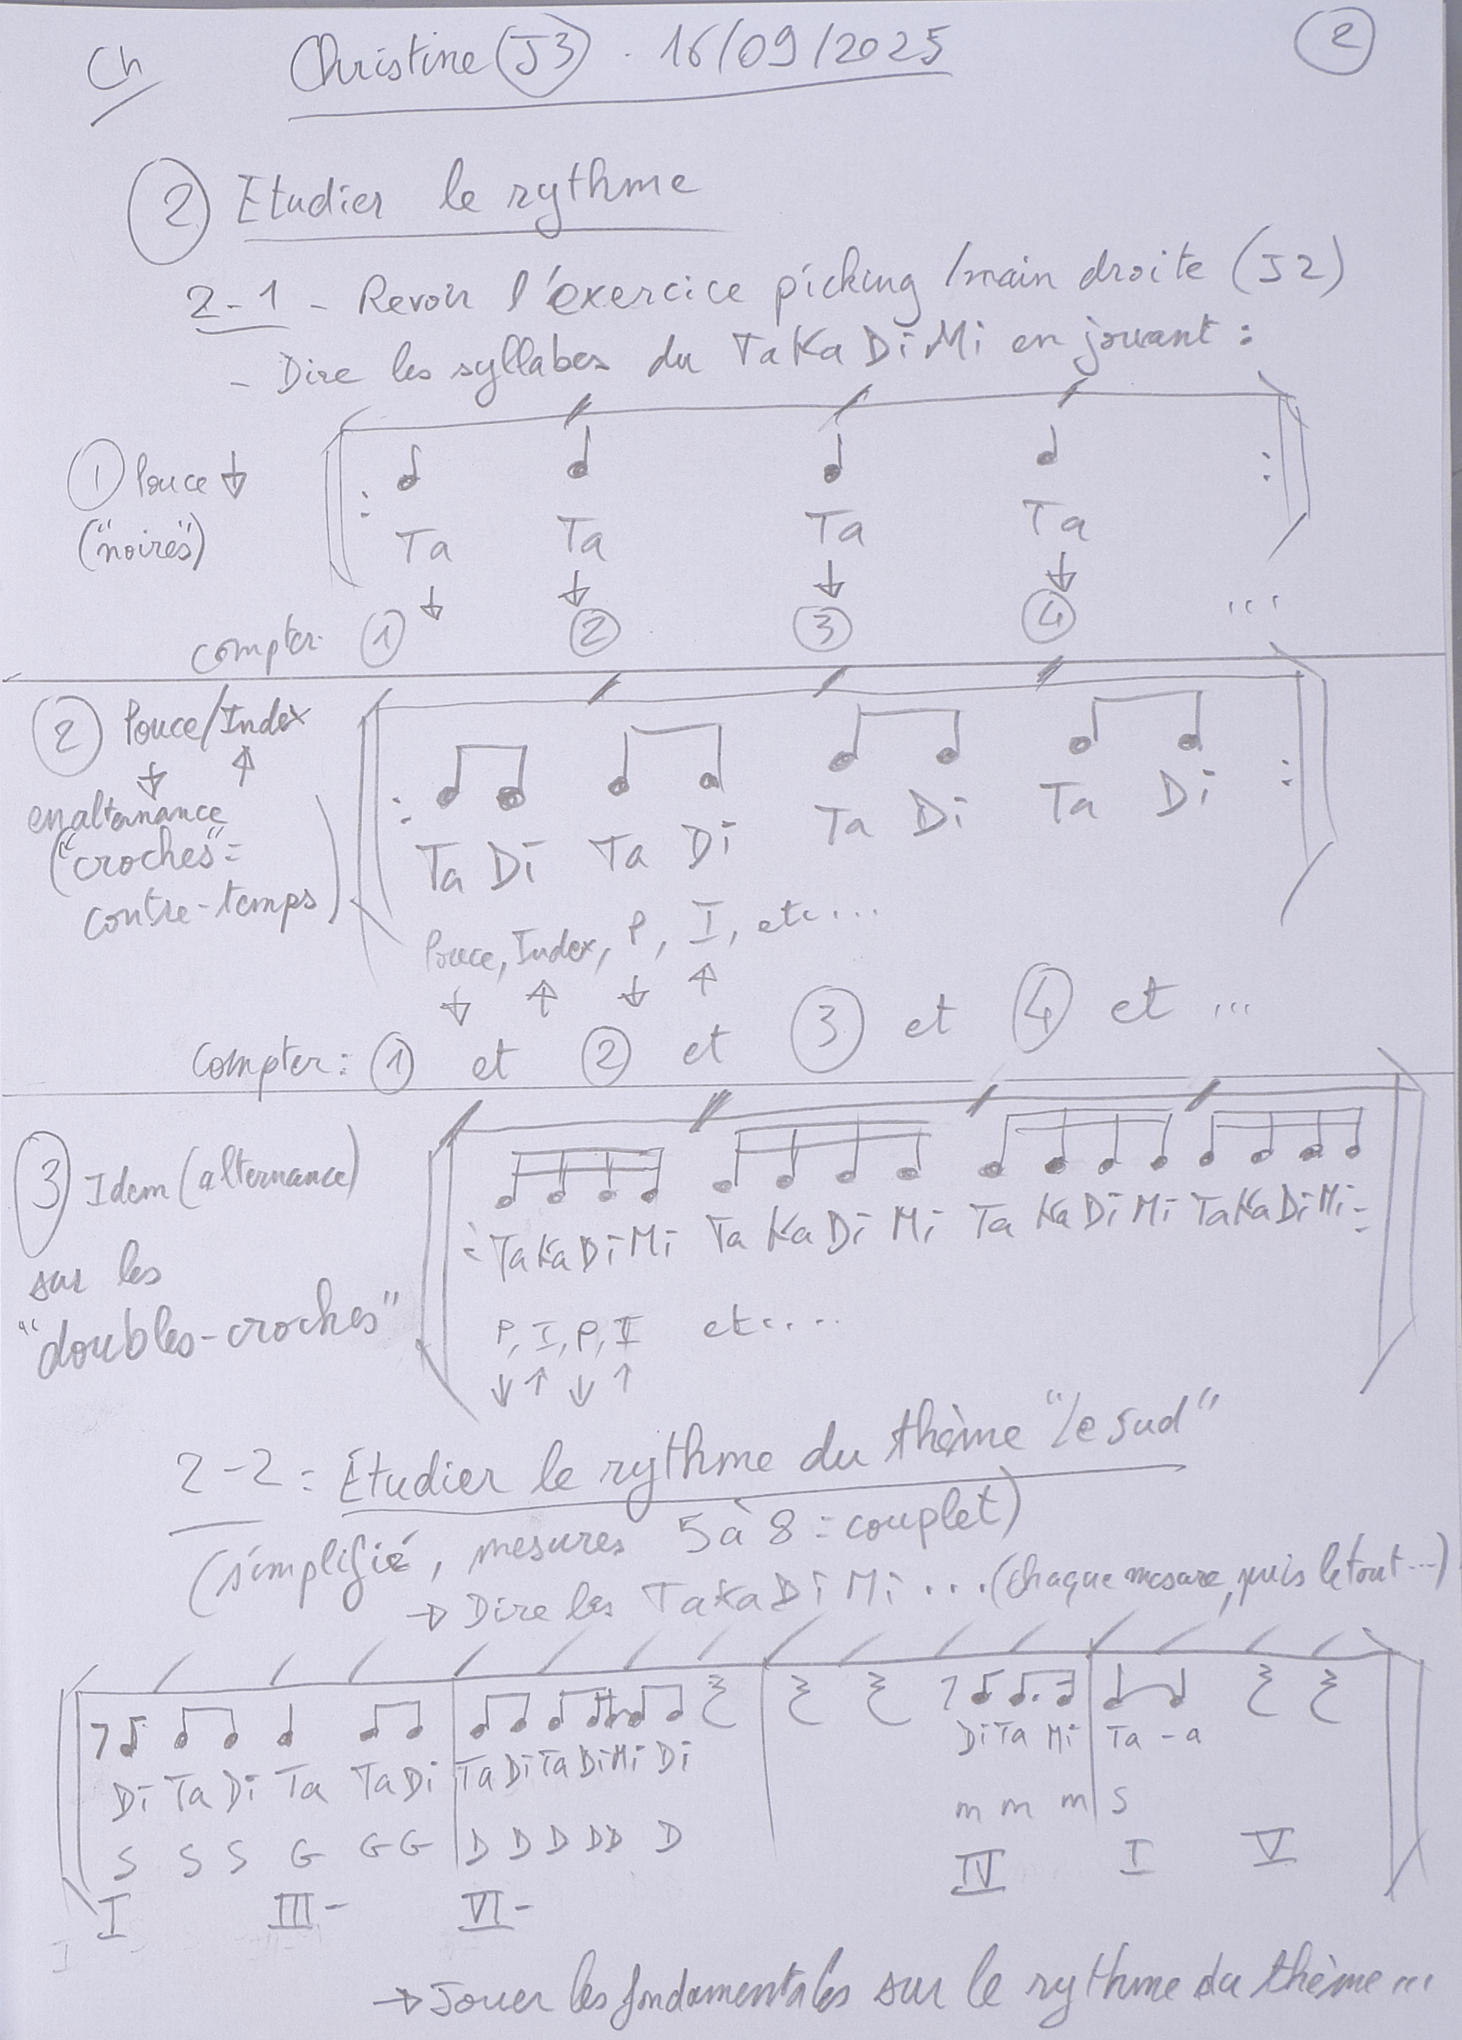 Ch Christine (J3) . 16/09/2025 2
2 Etudier le rythme
2-1 - Revoir l'exercice picking / main droite (J2)
- Dire les syllabes du TaKaDiMi en jouant :
1 Pouce ↓
("noires")
Ta Ta Ta Ta
↓ ↓ ↓ ↓
compter 1 2 3 4 ...
2 Pouce/Index
↓ ↑
en alternance
("croches" =
contre-temps)
Ta Di Ta Di Ta Di Ta Di
Pouce, Index, P, I, etc...
↓ ↑ ↓ ↑
Compter : 1 et 2 et 3 et 4 et ...
3 Idem (alternance)
sur les
"doubles-croches"
TaKaDiMi Ta Ka Di Mi Ta KaDi Mi TaKaDiMi
P, I, P, I etc...
↓ ↑ ↓ ↑
2-2 = Etudier le rythme du thème "le sud"
(simplifié, mesures 5 à 8 = couplet)
→ Dire les TaKaDiMi... (chaque mesure, puis le tout...)
Di Ta Di Ta Ta Di Ta Di Ta Di Mi Di Di Ta Mi Ta - a
S S S G G G D D D D D D m m m S
I III- VI- IV I V
→ Jouer les fondamentales sur le rythme du thème...